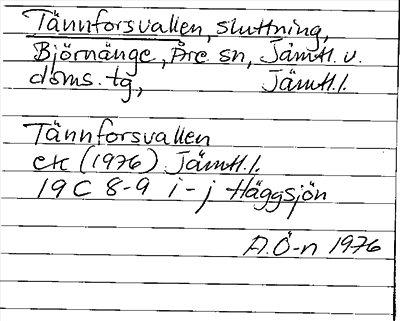 Tännforsvallen, sluttning,
Björnänge, Åre sn, Jämtl. v.
doms. tg, Jämtl. l.
Tännforsvallen
ek (1976) Jämtl. l.
19 C 8-9 i-j Häggsjön
A.Ö-n 1976